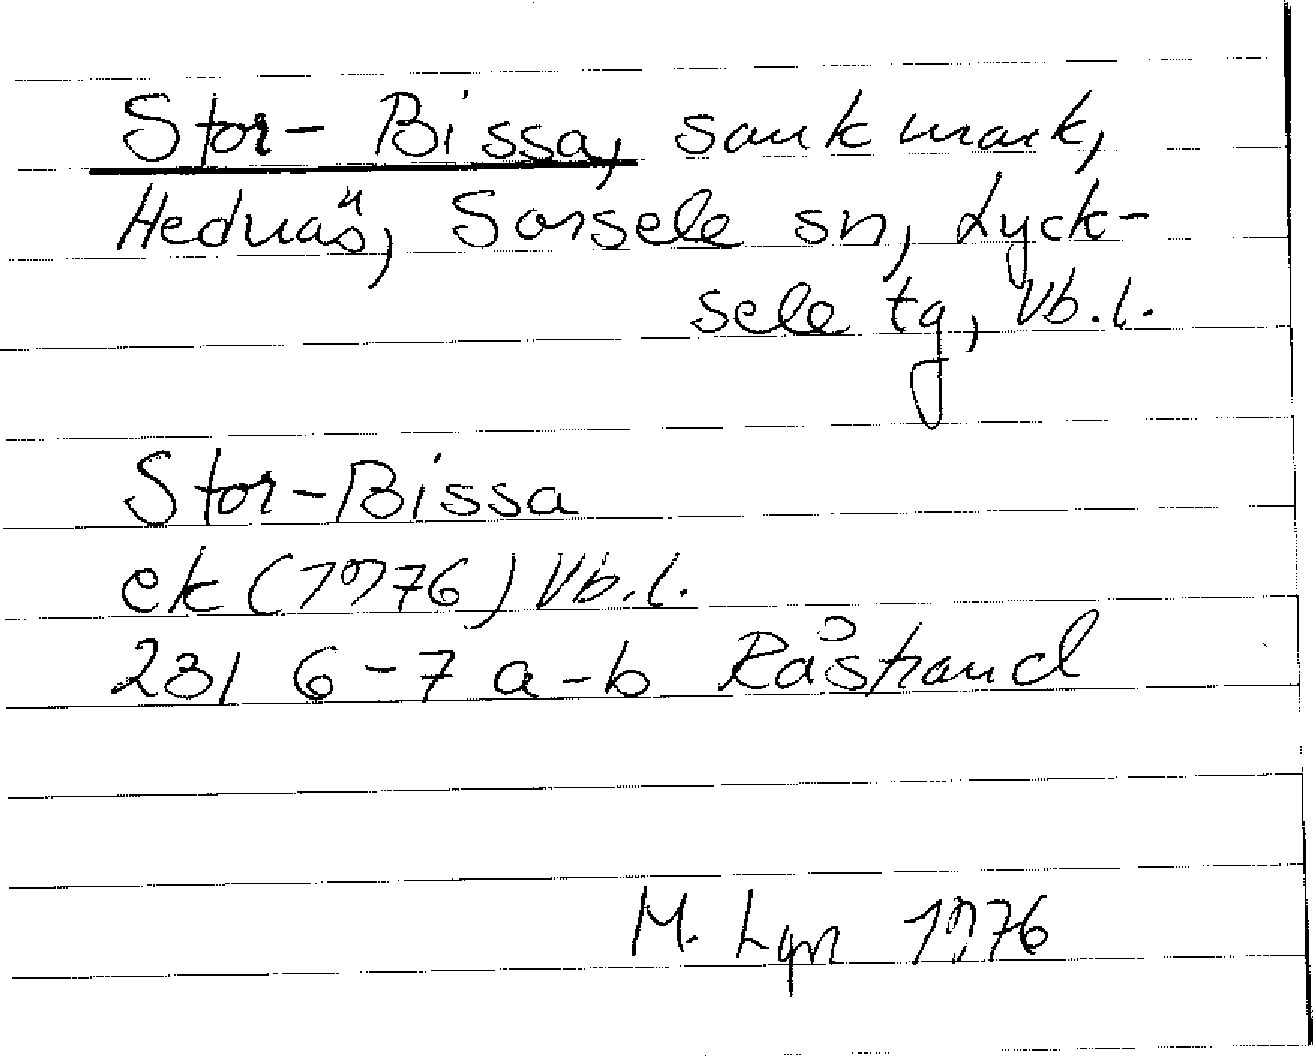 Stor-Bissa, sankmark,
Hednäs, Sorsele sn, Lyck-
sele tg, Vb.l.
Stor-Bissa
ek (1976) Vb.l.
23I 6-7 a-b Råstrand
M. Lgn 1976